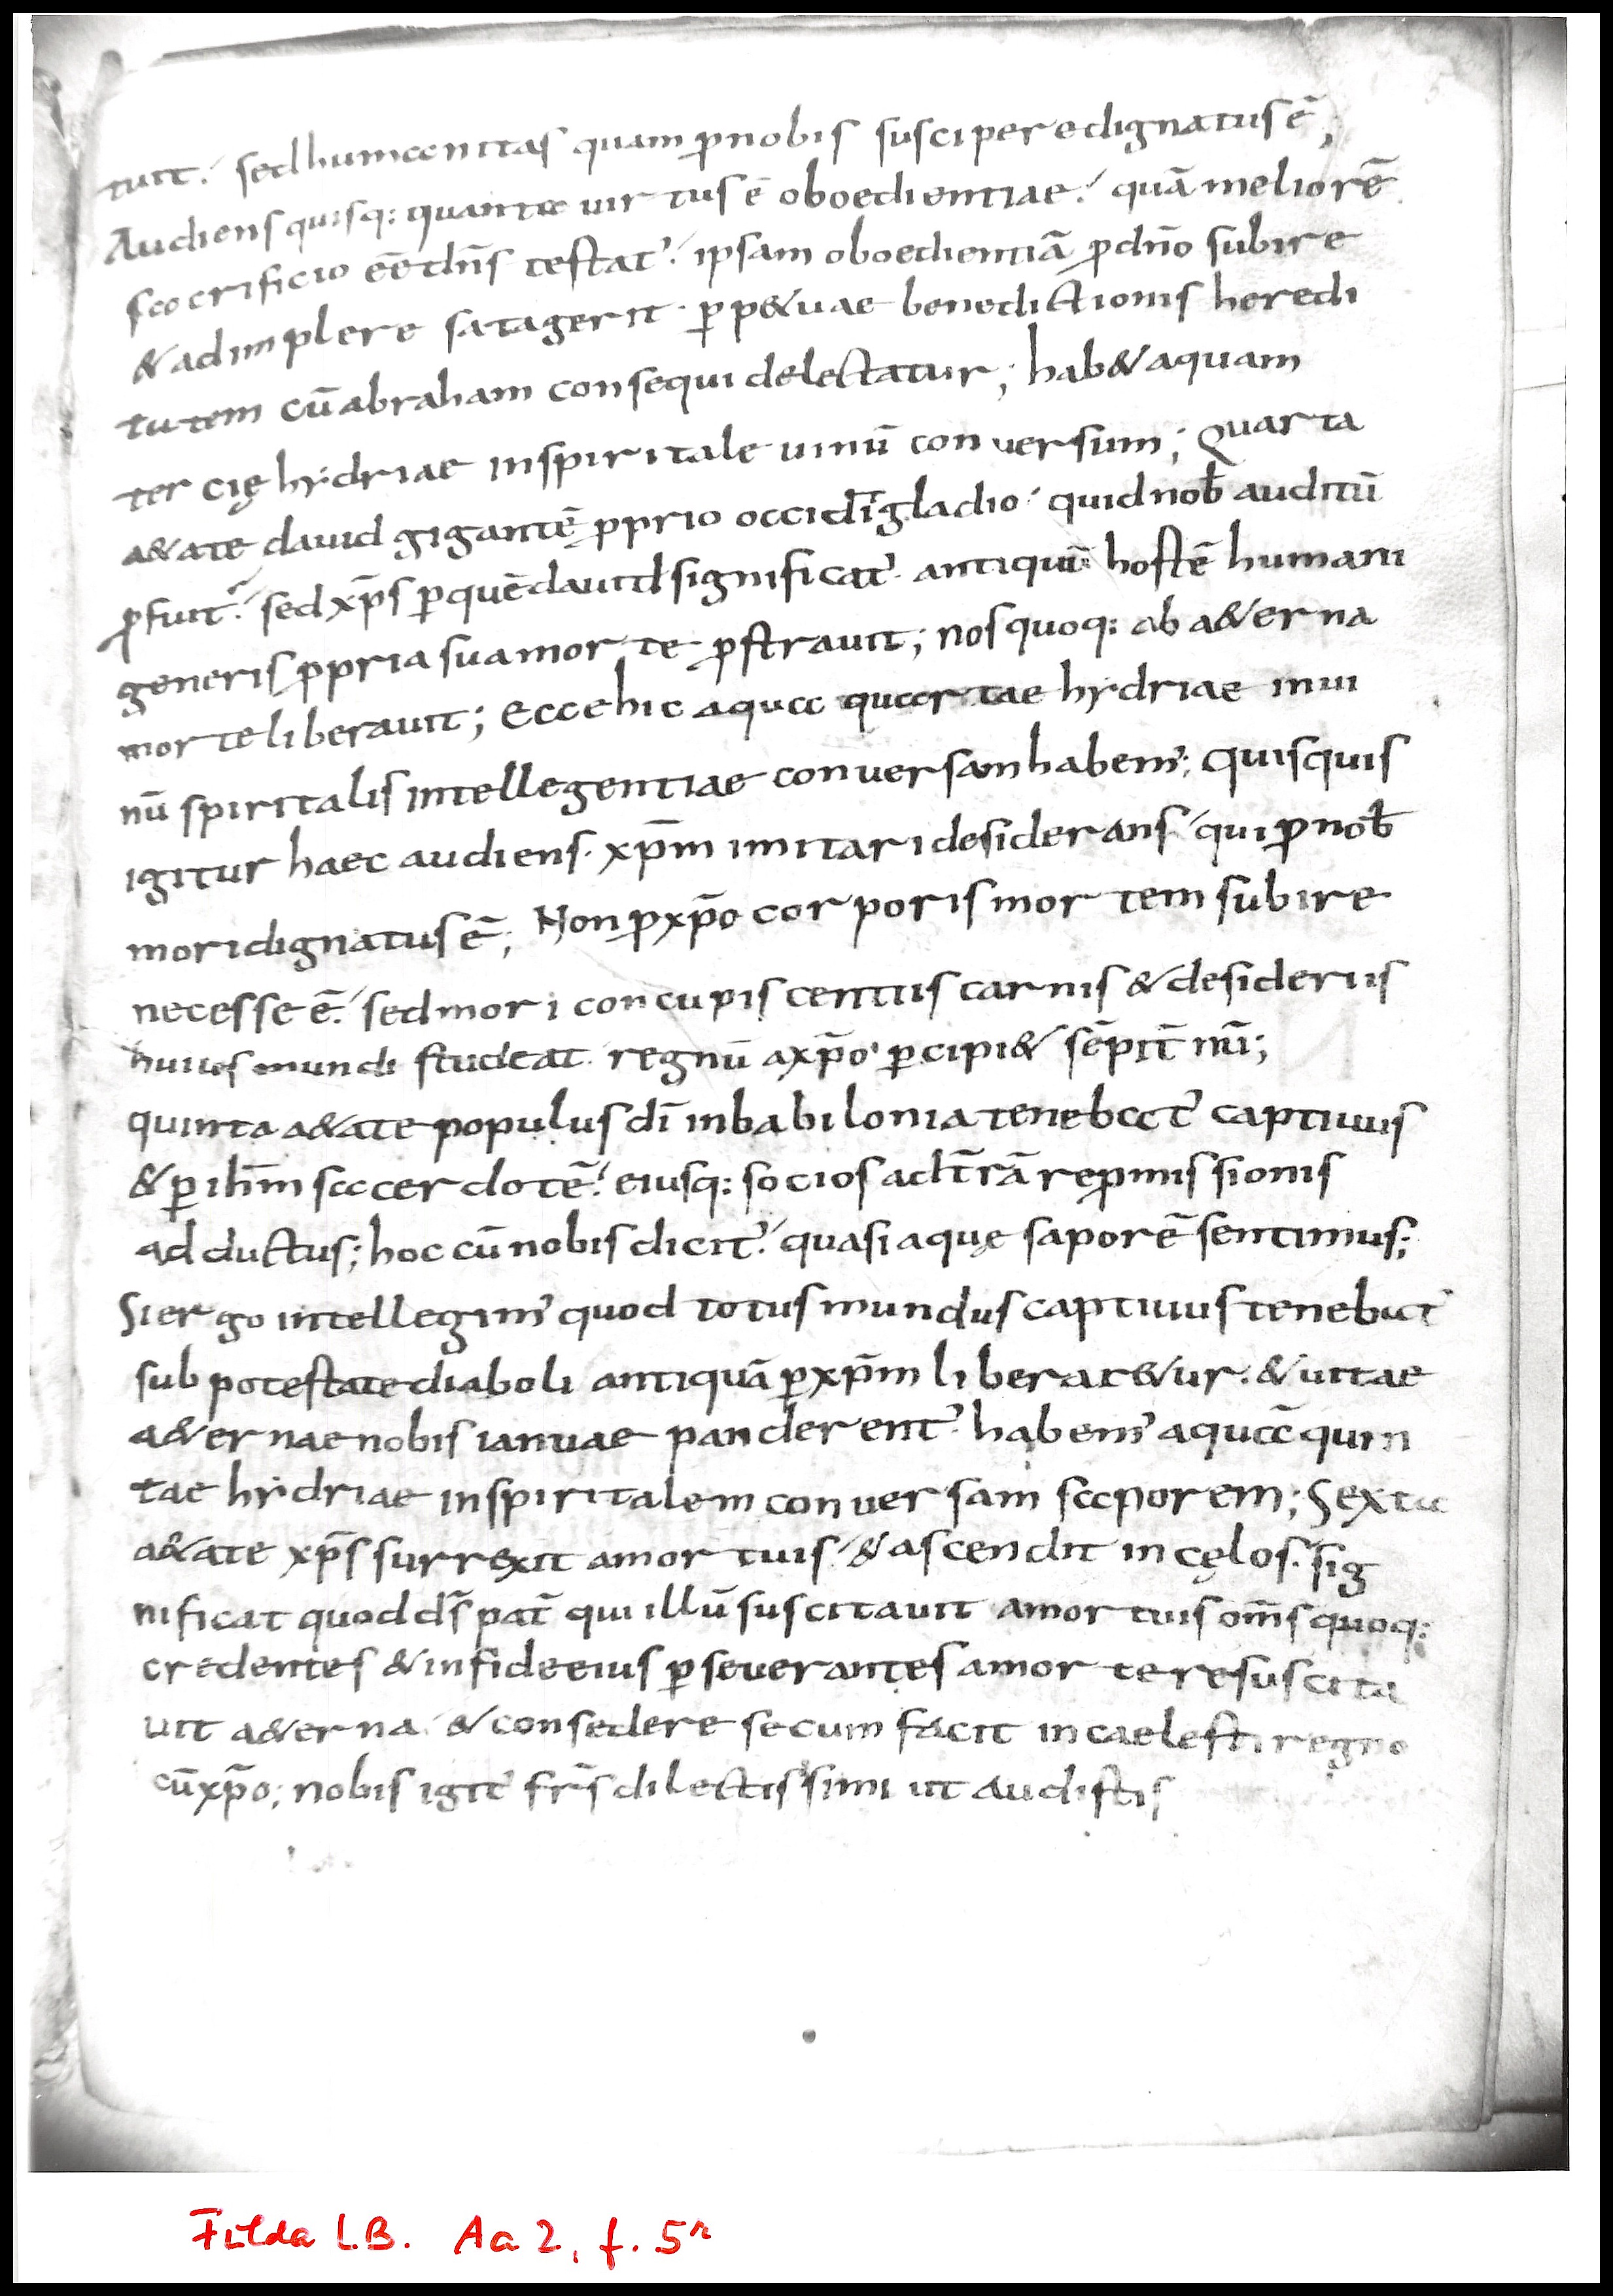 tuit. sed humanitas quam ꝓ nobis suscipere dignatus ē;
Audiens quisq: quanta uirtus ē oboedientiae. quā meliorē
sacrificio eē dn̄s testat᾽. ipsam oboedientiā ꝓ dn̄o subire
& adimplere satagerit. ꝑp&uae benedictionis heredi
tatem cū abraham consequi delectatur; hab& aquam
tercię hydriae in spiritale uinū conuersum; Quarta
a&ate dauid gigantē ꝓprio occidit gladio. quid nob̄ auditū
ꝓfuit. sed xp̄s ꝑ quē dauid significat᾽. antiquū hostē humani
generis ꝓpria sua morte ꝓstrauit; nos quoq: ab a&erna
morte liberauit; Ecce hic aqua quartae hydriae in ui
nū spiritalis intellegentiae conuersam habem᾽; quisquis
igitur haec audiens. xp̄m imitari desiderans qui ꝓ nob̄
mori dignatus ē; Non ꝓ xp̄o corporis mortem subire
necesse ē. sed mori concupiscentiis carnis & desideriis
huius mundi studeat. regnū a xp̄o ꝑcipi& sēpit̄nū;
quinta a&ate populus dī in babilonia tenebat᾽ captiuus
& ꝑ ih̄m sacerdotē. eiusq: socios ad t̄rā repmissionis
adductus; hoc cū nobis dicit᾽. quasi aquę saporē sentimus;
Si ergo intellegim᾽ quod totus mundus captiuus tenebat᾽
sub potestate diaboli antiquā ꝑ xp̄m liberar&ur. & uitae
a&ernae nobis ianuae panderent᾽. habem᾽ aquā quin
tae hydriae in spiritalem conuersam saporem; Sexta
a&ate xp̄s surrexit a mortuis & ascendit in cęlos. sig
nificat quod ds̄ pat̄ qui illū suscitauit a mortuis om̄s quoq:
credentes & in fide eius ꝑseuerantes a morte resuscita
uit a&erna & consedere secum facit in caelesti regno
cū xp̄o; nobis igit᾽ fr̄s dilectissimi ut audistis
Fulda L.B. Aa 2, f. 5r